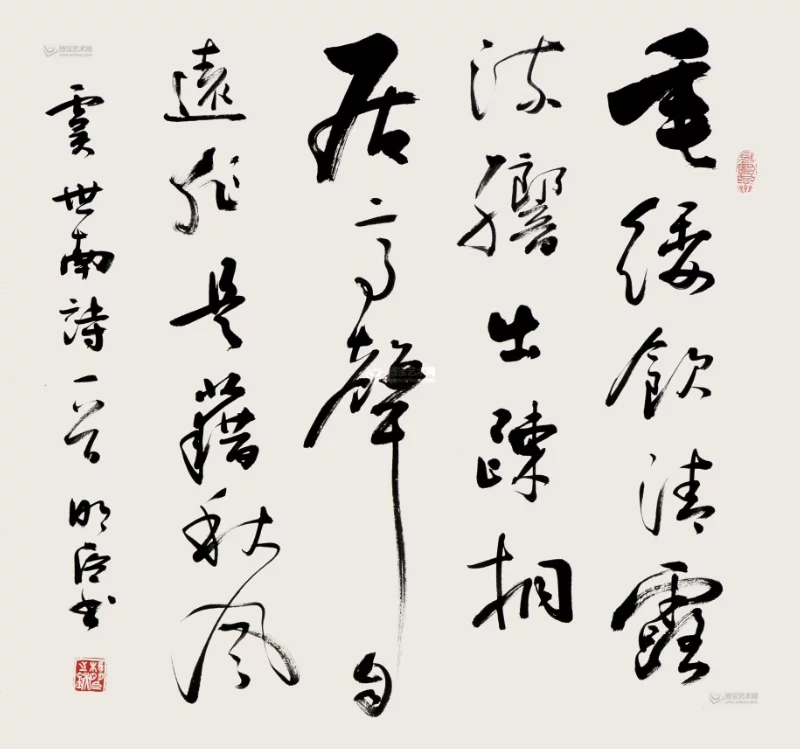 垂緌飲清露
流響出疎桐
居高聲自
遠非是藉秋風
虞世南詩一首 明书